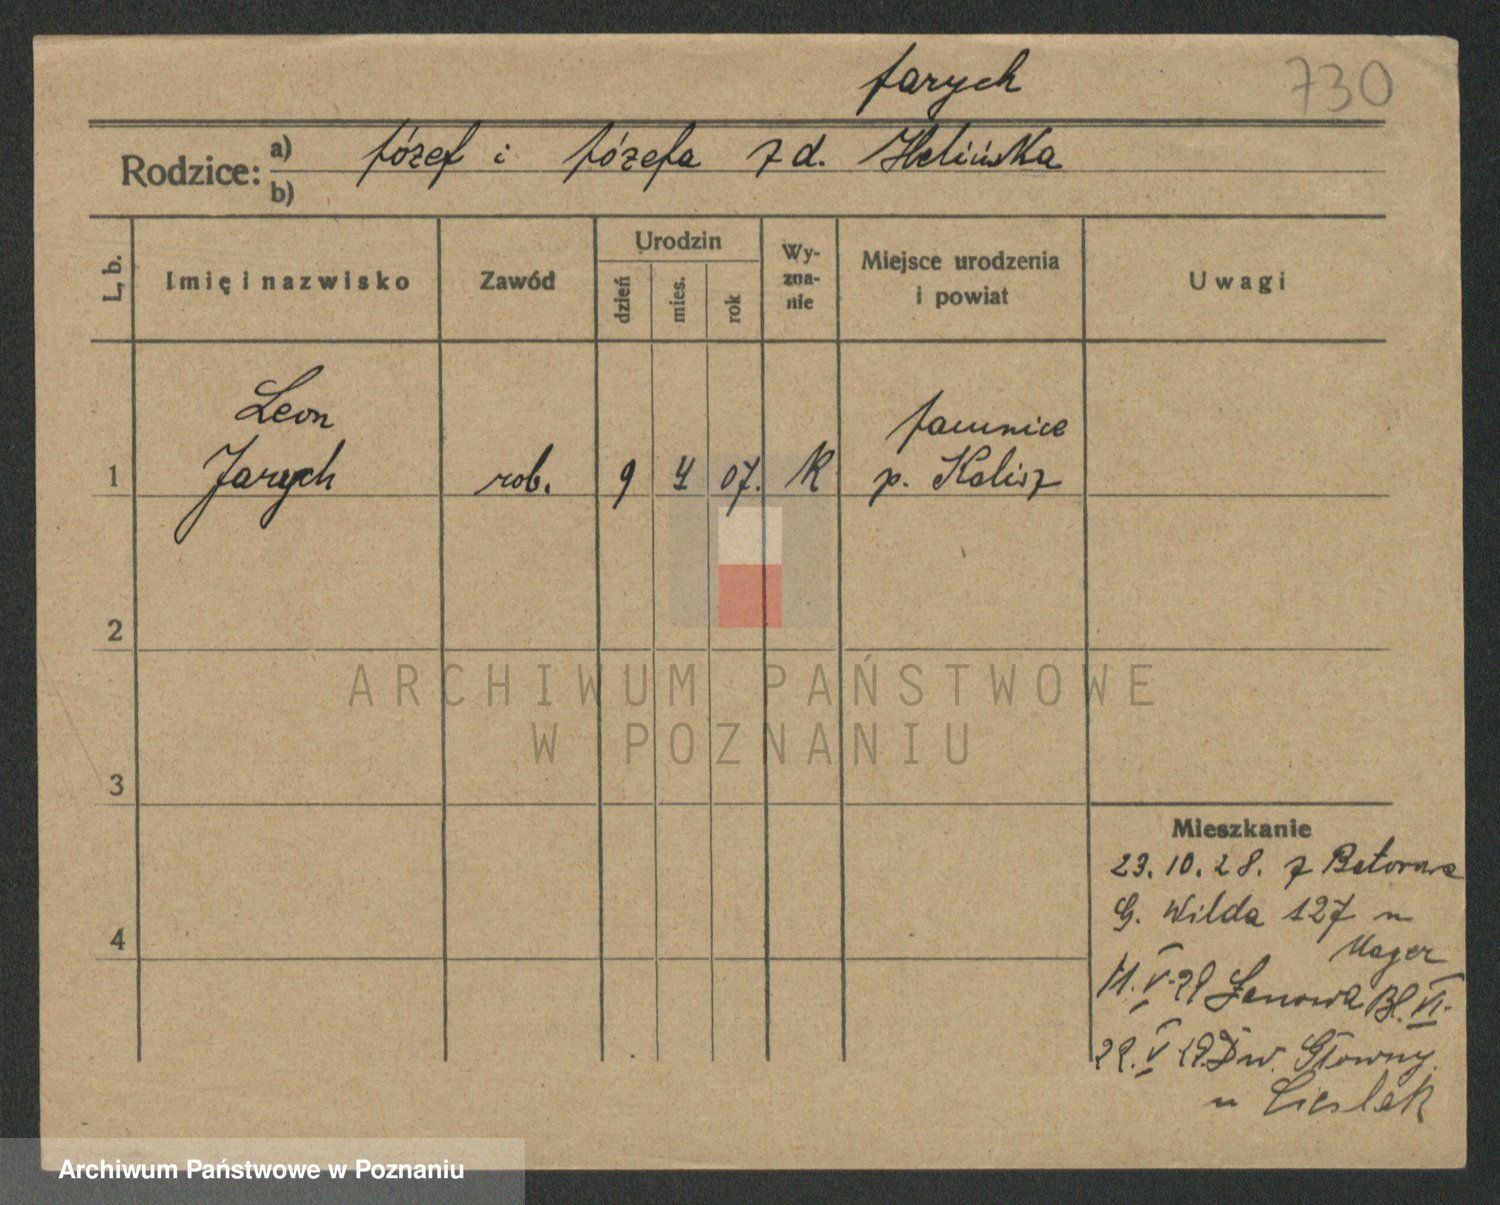 Jarych
730
Rodzice: a) Józef i Józefa z d. Helińska
b)
L, b.
Imię i nazwisko
Zawód
Urodzin
dzień
mies.
rok
Wy-
zna-
nie
Miejsce urodzenia
i powiat
Uwagi
Leon
Jarych
1
rob.
9
4
07.
K
p. Kalisz
2
3
4
ARCHIWUM PAŃSTWOWE
W POZNANIU
Mieszkanie
23.10.28. z
G. Wilda 127 u
Mager
11.V.29 Bł. VI.
29.V.29 Dw. Głowny
u Cieslak
Archiwum Państwowe w Poznaniu